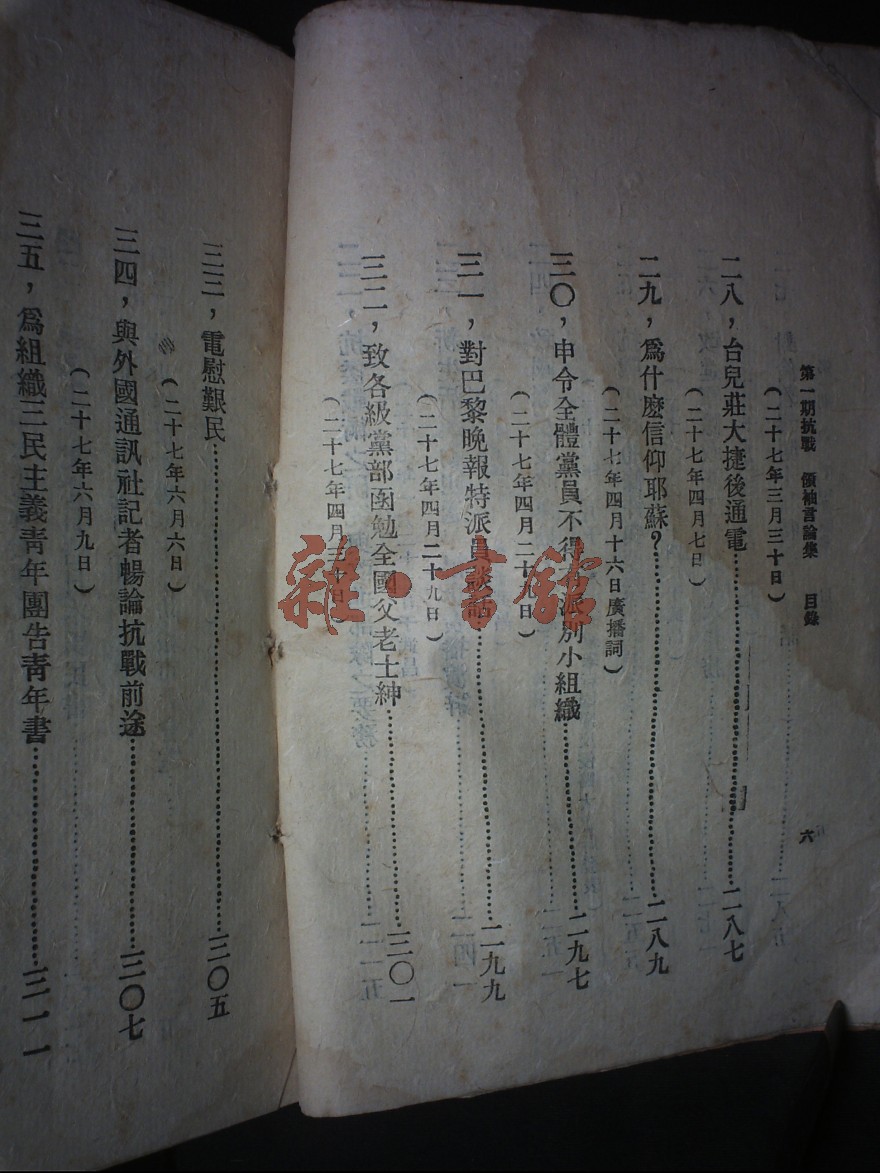 第一期抗戰　領袖言論集　目錄　六
（二十七年三月三十日）
二八，台兒莊大捷後通電…………二八七
（二十七年四月七日）
二九，爲什麽信仰耶蘇？…………二八九
（二十七年四月十六日廣播詞）
三〇，申令全體黨員不得 派別小組織…………二九七
（二十七年四月二十 日）
三一，對巴黎晚報特派員談話…………二九九
（二十七年四月二十九日）
三二，致各級黨部函勉全國父老士紳…………三〇一
（二十七年四月三十日）
三三，電慰艱民…………三〇五
（二十七年六月六日）
三四，與外國通訊社記者暢論抗戰前途…………三〇七
（二十七年六月九日）
三五，爲組織三民主義靑年團告靑年書…………三一一
雜·書館